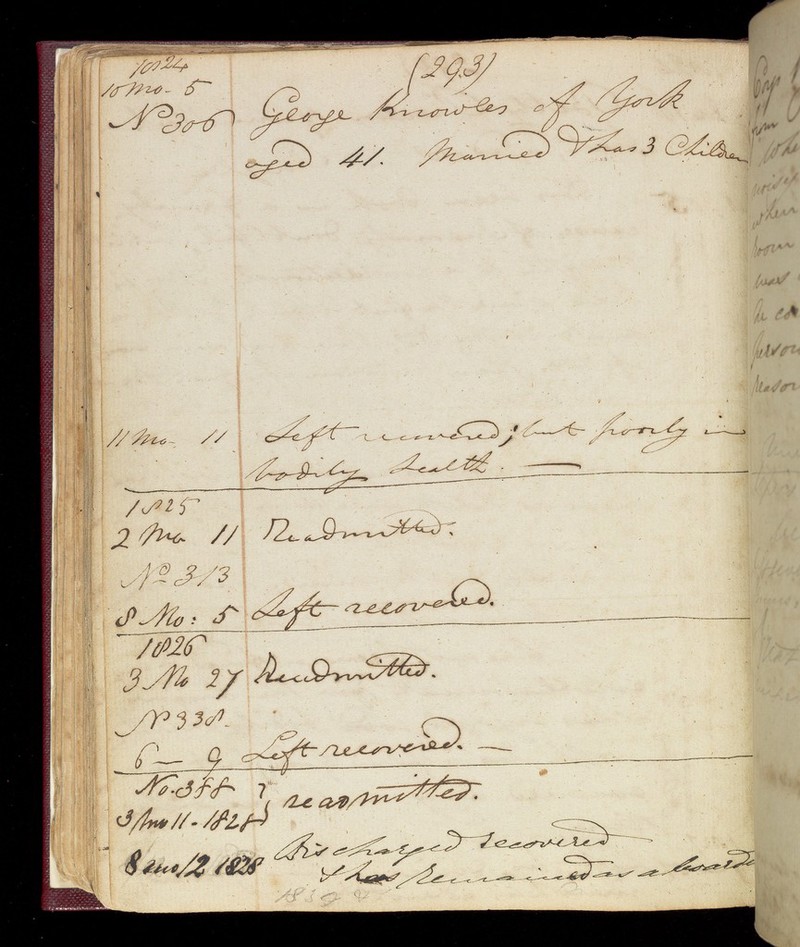 (293)
1824
10 Mo- 5
No 306 George Knowles of York
aged 41. Married & has 3 Children
11 Mo- 11 Left recovered; but poorly in
bodily health. —
1825
2 Mo 11 Readmitted.
No 313
8 Mo: 5 Left recovered.
1826
3 Mo 27 Readmitted.
No 338.
6 — 9 Left recovered. —
No. 388
3 mo 11 - 1828 } readmitted.
8 mo 12 1828 Discharged recovered
& has remained as a boarder